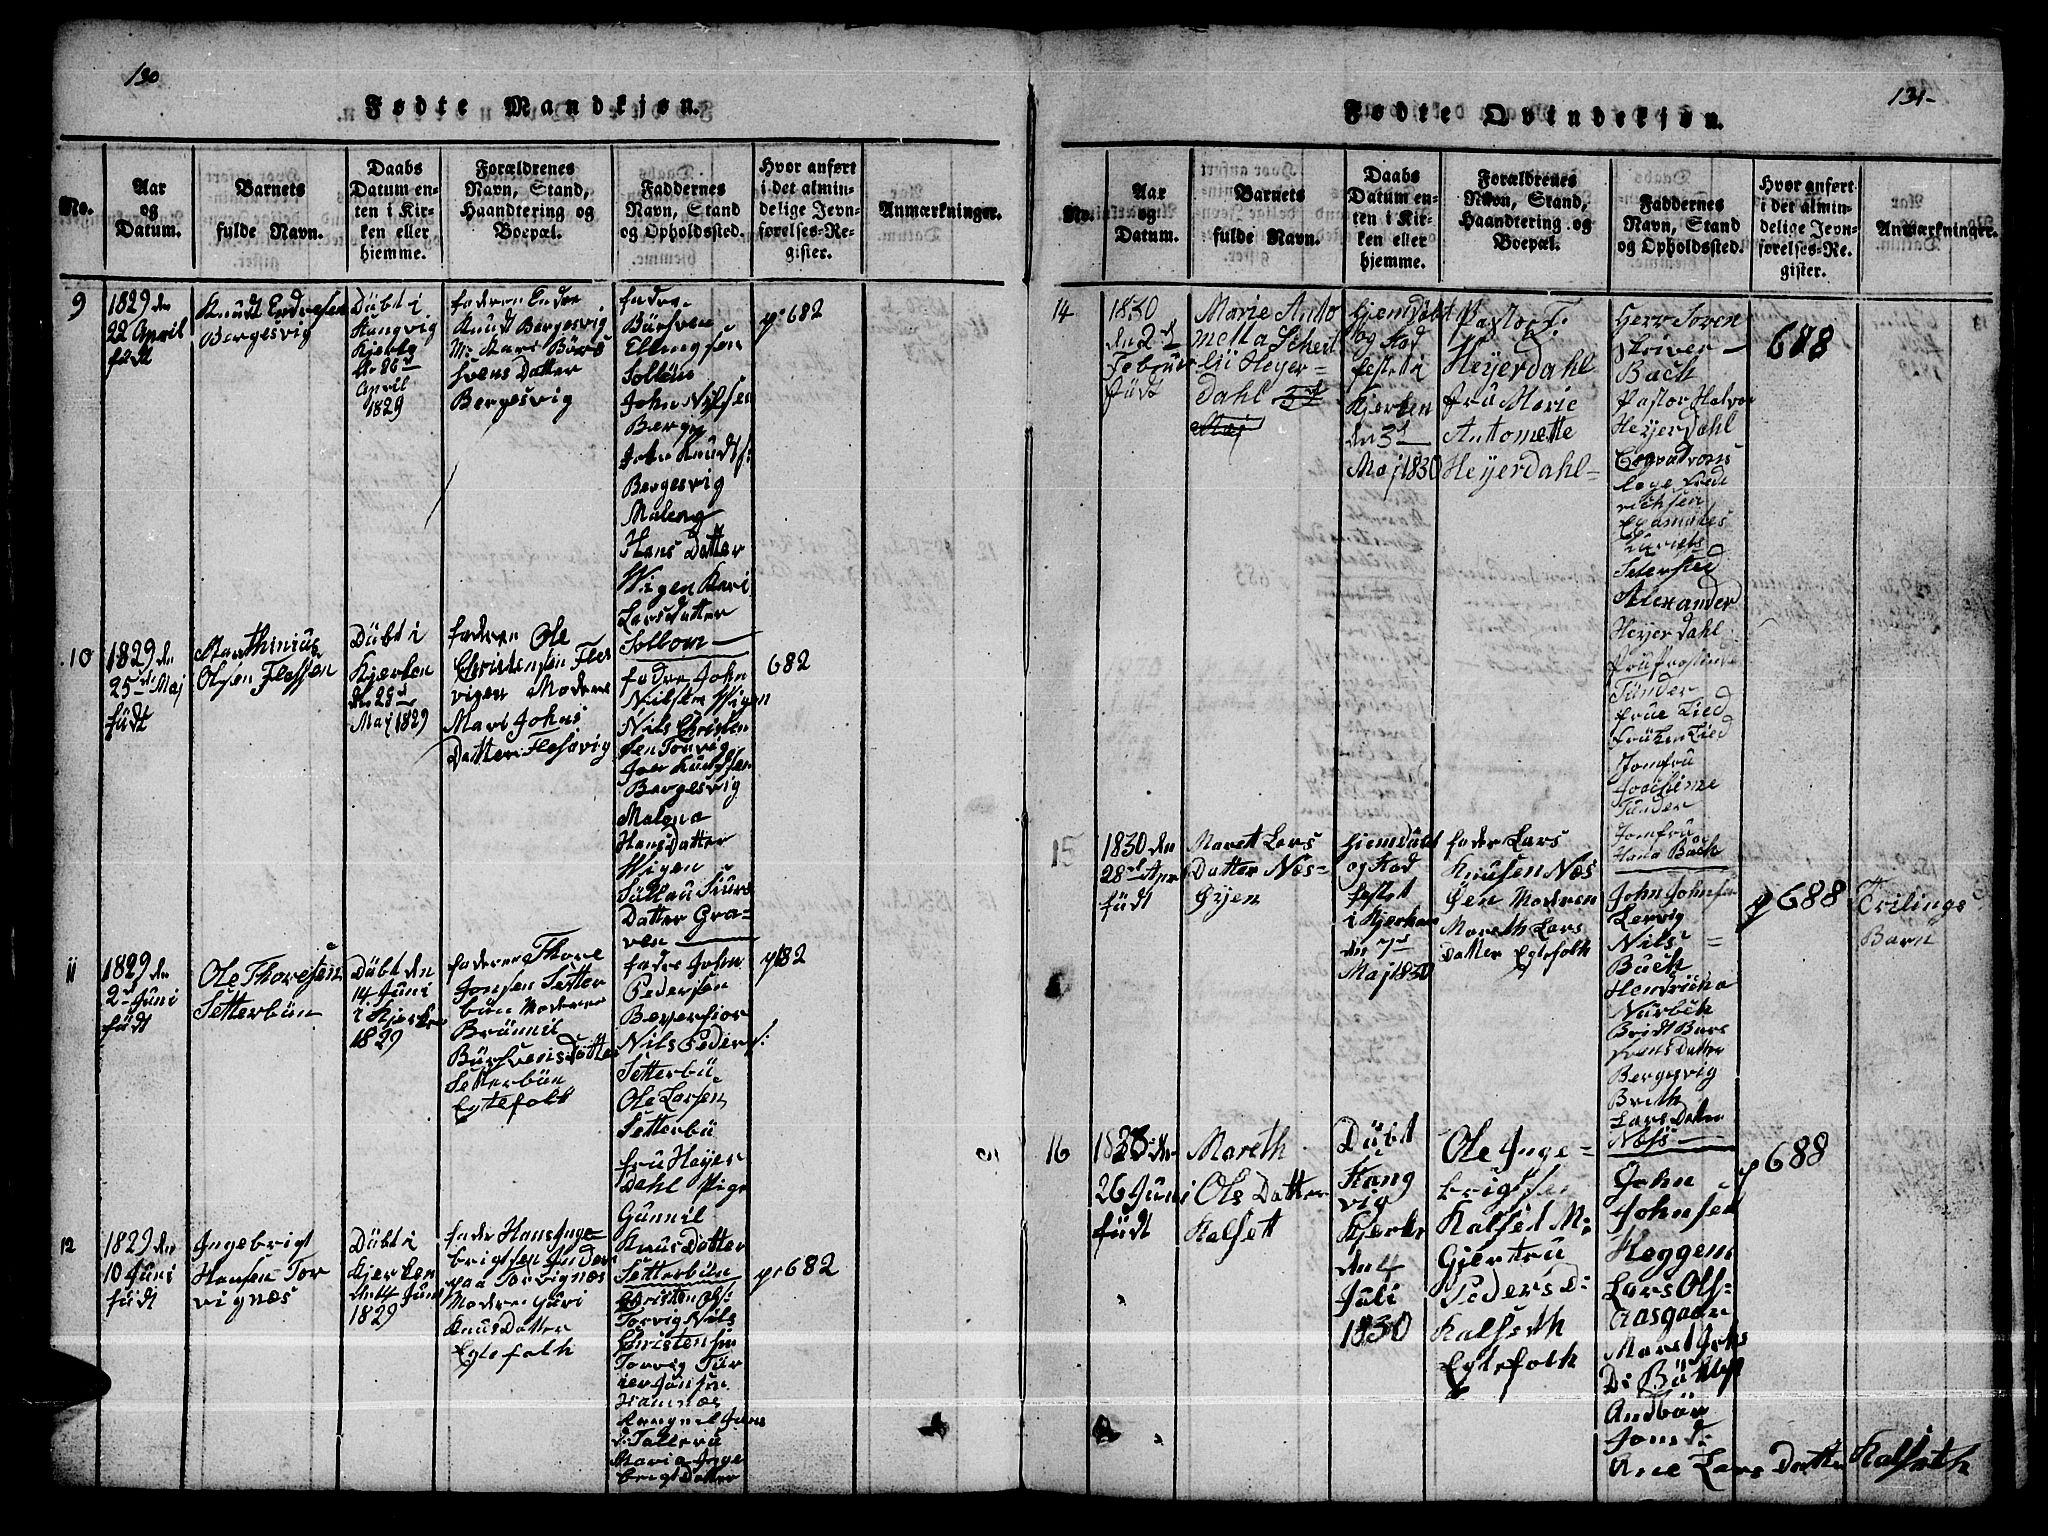 130
Fødte Mandkjøn.
No.
Aar
og
Datum.
Barnets
fulde Navn.
Daabs
Datum en-
ten i Kir-
ken eller
hjemme.
Forældrenes
Navn, Stand,
Haandtering og
Boepæl.
Faddernes
Navn, Stand
og Opholdssted.
Hvor anført
i det almin-
delige Jevn-
førelses-Re-
gister.
Anmærkninger.
9
1829 den
22 April
født
Knudt Endresen
Bergesvig
Döbt i
Stangvig
Kjerke
dn 26
April
1829
faderen Endre
Knudt Bergesvig
M: Kari Börs
svens Datter
Bergesvig
fadre
Börsven
Ellingsen
Sollem
John Nilsen
Berge
John Knudts:
Bergesvig
Maleng
Hans Datter
Wigen Kari
Larsdatter
Solbom
p: 682
10
1829 den
25 Maj
född
Marthinius
Olsen Flessen
Döbt i
Kjerken
dn 28
Maj 1829
faderen Ole
Christensen Fles
vigen Moderen
Mari Johns
Datter Flesvig
fadre John
Nilsen Wigen
Nils Christen
sen Torvig
Joer Knudsen
Bergesvig
Malena
Hansdatter
Wigen
Siurs
Datter Gra-
ven
682
11
1829 den
2 Juni
född
Ole Thoresen
Setterbün
Döbt den
14 Juni
i Kjerken
1829
faderen Thore
Jonsen Setter
bun Moderen
Brünnil
Börsvens Datter
Setterbün
Egtefolk
fadre John
Pedersen
Beverfior
Nils Peders:
Setterbü
Ole Larsen
Setterbü
fru Heyer
Dahl Pige
Gunnil
Knus Datter
Setterbün
p 82
12
1829 den
10 Juni
född
Ingebrigt
Hansen Tor
vignæs
Döbt i
Kjerken
dn 14 Juni
1829
fader Hans Inge-
brigtsen Inder
paa Torvignæs
Modren Guri
Knus Datter
Egtefolk
Christen Ols:
Torvig Nils
Christensen
Torvig Tür
ier Jonsen
Hamnæs
Ragnil Jons
d: Tallerü
Maria Inge
brigt Datter
p: 682
131-
Fødte Qvindekjøn.
No.
Aar
og
Datum.
Barnets
fulde Navn.
Daabs
Datum en-
ten i Kir-
ken eller
hjemme.
Forældrenes
Navn, Stand,
Haandtering og
Boepæl.
Faddernes
Navn, Stand
og Opholdssted.
Hvor anført
i det almin-
delige Jevn-
førelses-Re-
gister.
Anmærkninger.
14
1830
den 2
Februar
född
Marie Anto
metta
Heyer-
Dahl 3
Maj
hjemdöbt
og Stad
festet i
Kjerken
den 3
Maj 1830
Pastor F:
Heyerdahl
fru Marie
Antomette
Heyerdahl-
Herr Soren
skriver
Bach
Pastor Halvor
Heyerdahl
Fried
richsen
Petersted
Alexander
Heyerdahl
Tünder
frue Tied
fröken Tied
Jomfru
Joachime
Tünder
Jomfru
Hana Bach
688
15
1830 den
28 Apr
född
Maret Lars
Datter Næs-
Öyen
hjemdöbt
og Stad
festet
i Kjerken
den 7
Maj 1830
fader Lars
Knusen Næs
Öen Modren
Mareth Lars
Datter Egtefolk
John Johnsen
Lervig
Nils
Bach
Hendricha
Nürbek
Bridt Bars
svens Datter
Bergesvig
Brith
Lars Datter
Næss
p 688
Trilings
Barn
16
26 Juni
född
Mareth
Ols Datter
Kalsett
Döbt
Stang
vig
Kjerke
den 4
Juli
1830
Ole Inge-
brigtsen
Kalset M:
Gjertru
Peders D:
Kalseth
Egtefolk
John
Johnsen
Heggem
Lars Ols:
Aasgaar
Maret Johs
D: Böklep
Andbör
Jons d:
Ane Lars Datter Kalseth
p 688